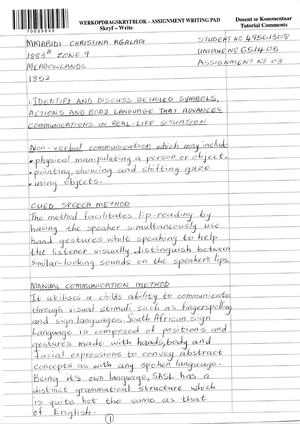 WERKOPDRAGSKRYFBLOK – ASSIGNMENT WRITING PAD
Skryf – Write
Dosent se Kommentaar
Tutorial Comments
MMABIDI CHRISTINA KGALADI
STUDENT Nº 49561308
1883 B ZONE 9
UNIQUE Nº 651406
MEADOWLANDS
ASSIGNMENT Nº 03
1852
1. IDENTIFY AND DISCUSS DETAILED SYMBOLS,
ACTIONS AND BODY LANGUAGE THAT ADVANCES
COMMUNICATIONS IN REAL-LIFE SITUATION
Non-verbal communication which may include
• physical manipulating a person or object.
• pointing, showing and shifting gaze
• using objects.
CUED SPEECH METHOD
The method facilitates lip-reading by
having the speaker simultaneously use
hand gestures while speaking to help
the listener visually distinguish between
similar-looking sounds on the speakers lips.
MANUAL COMMUNICATION METHOD
It utilises a childs ability to communicate
through visual stimuli such as fingerspelling
and sign languages. South African sign
Language is composed of positions and
gestures made with hands, body and
facial expressions to convey abstract
concepts as with any spoken language.
Being it's own language, SASL has a
distinct grammatical structure which
is quite not the same as that
of English.
1